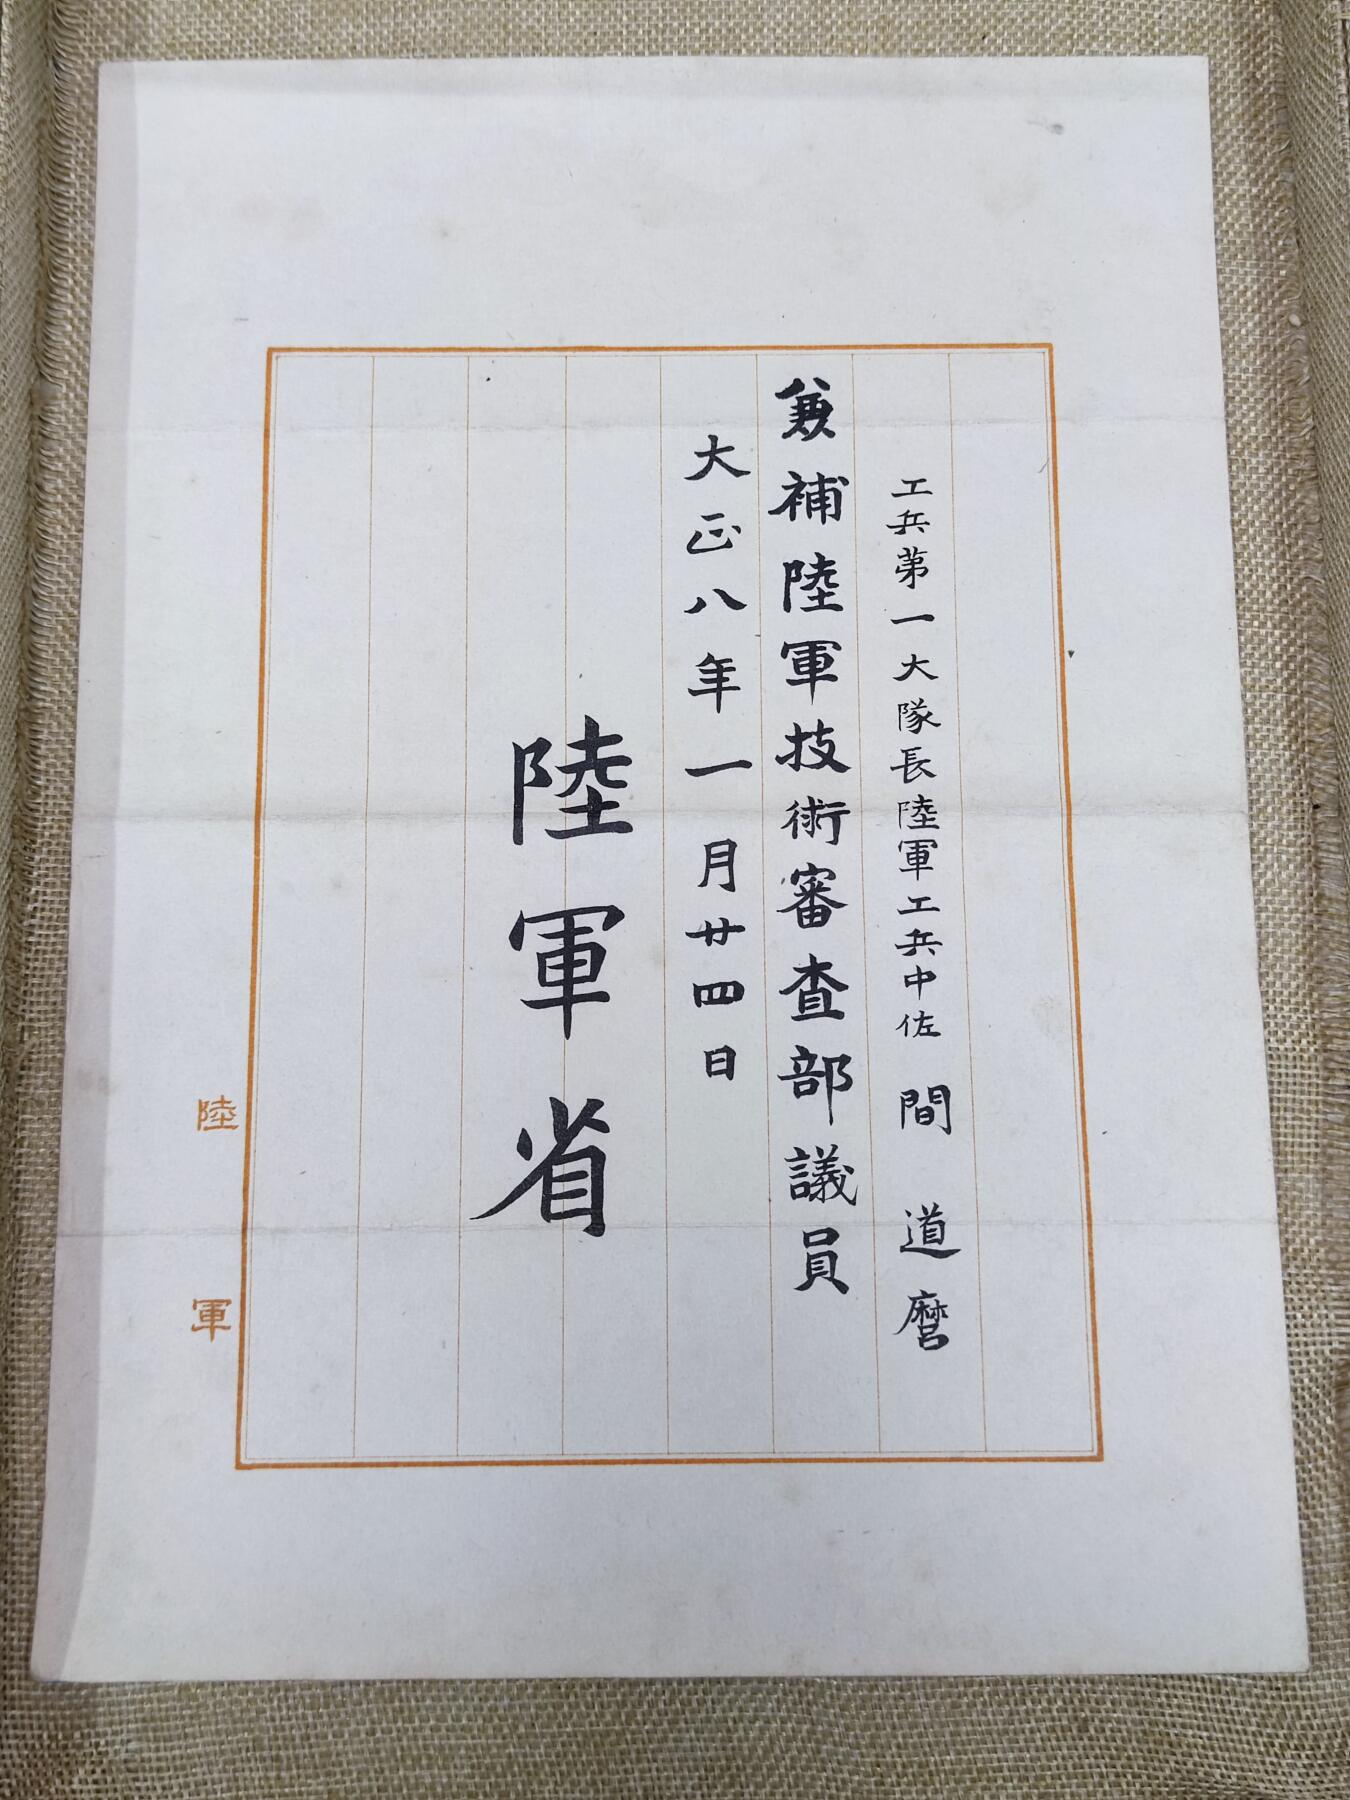 工兵第一大隊長陸軍工兵中佐 間 道麿
兼補陸軍技術審査部議員
大正八年一月廿四日
陸軍省
陸軍